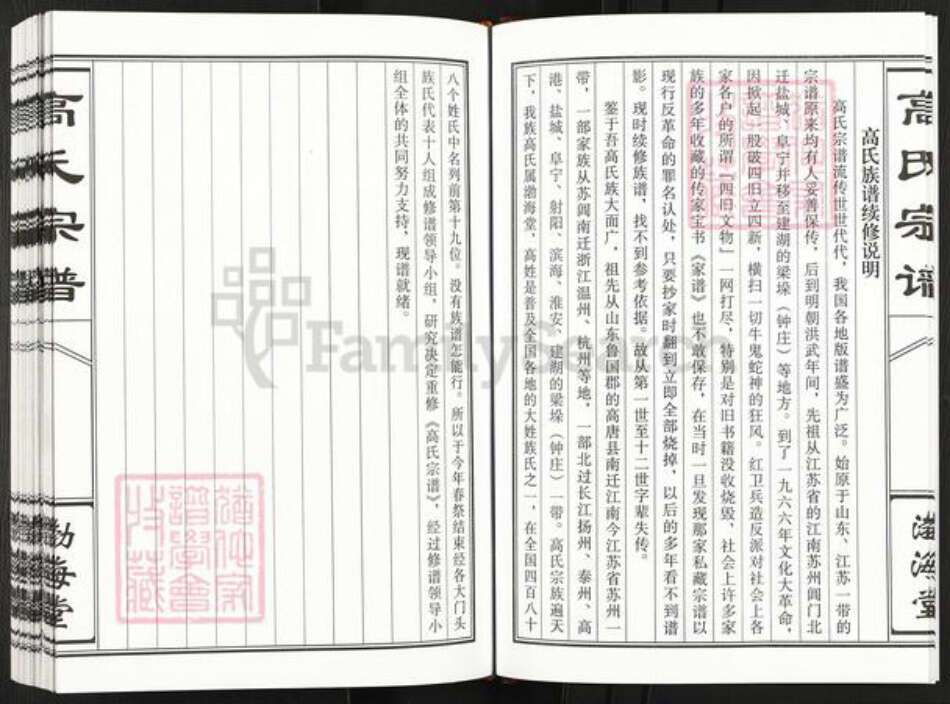 高氏宗谱
渤海堂
高氏族谱续修说明
高氏宗谱流传世世代代，我国各地版谱盛为广泛。始原于山东、江苏一带的
宗谱原来均有人妥善保传，后到明朝洪武年间，先祖从江苏省的江南苏州阊门北
迁盐城、阜宁并移至建湖的梁垛（钟庄）等地方。到了一九六六年文化大革命，
因掀起一股破四旧立四新，横扫一切牛鬼蛇神的狂风。红卫兵造反派对社会上各
家各户的所谓“四旧文物”一网打尽，特别是对旧书籍没收烧毁，社会上许多家
族的多年收藏的传家宝书《家谱》也不敢保存，在当时一旦发现那家私藏宗谱以
现行反革命的罪名认处，只要抄家时翻到立即全部烧掉，以后的多年看不到谱
影。现时续修族谱，找不到参考依据。故从第一世至十二世字辈失传。
鉴于吾高氏族大面广，祖先从山东鲁国郡的高唐县南迁江南今江苏省苏州一
带，一部家族从苏阊南迁浙江温州、杭州等地，一部北过长江扬州、泰州、高
港、盐城、阜宁、射阳、滨海、淮安、建湖的梁垛（钟庄）一带。高氏宗族遍天
下，我族高氏属渤海堂，高姓是普及全国各地的大姓族氏之一，在全国四百八十
八个姓氏中名列前第十九位。没有族谱怎能行。所以于今年春祭结束经各大门头
族氏代表十人组成修谱领导小组，研究决定重修《高氏宗谱》，经过修谱领导小
组全体的共同努力支持，现谱就绪。
高氏宗谱
渤海堂
FamilySearch